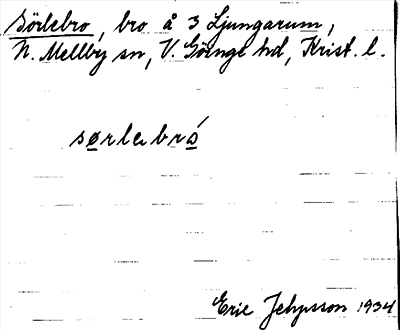 Sörlebro, bro å 3 Ljungarum,
N. Mellby sn, V. Göinge hd, Krist. l.
sørlebró
Eric Jehpsson 1934